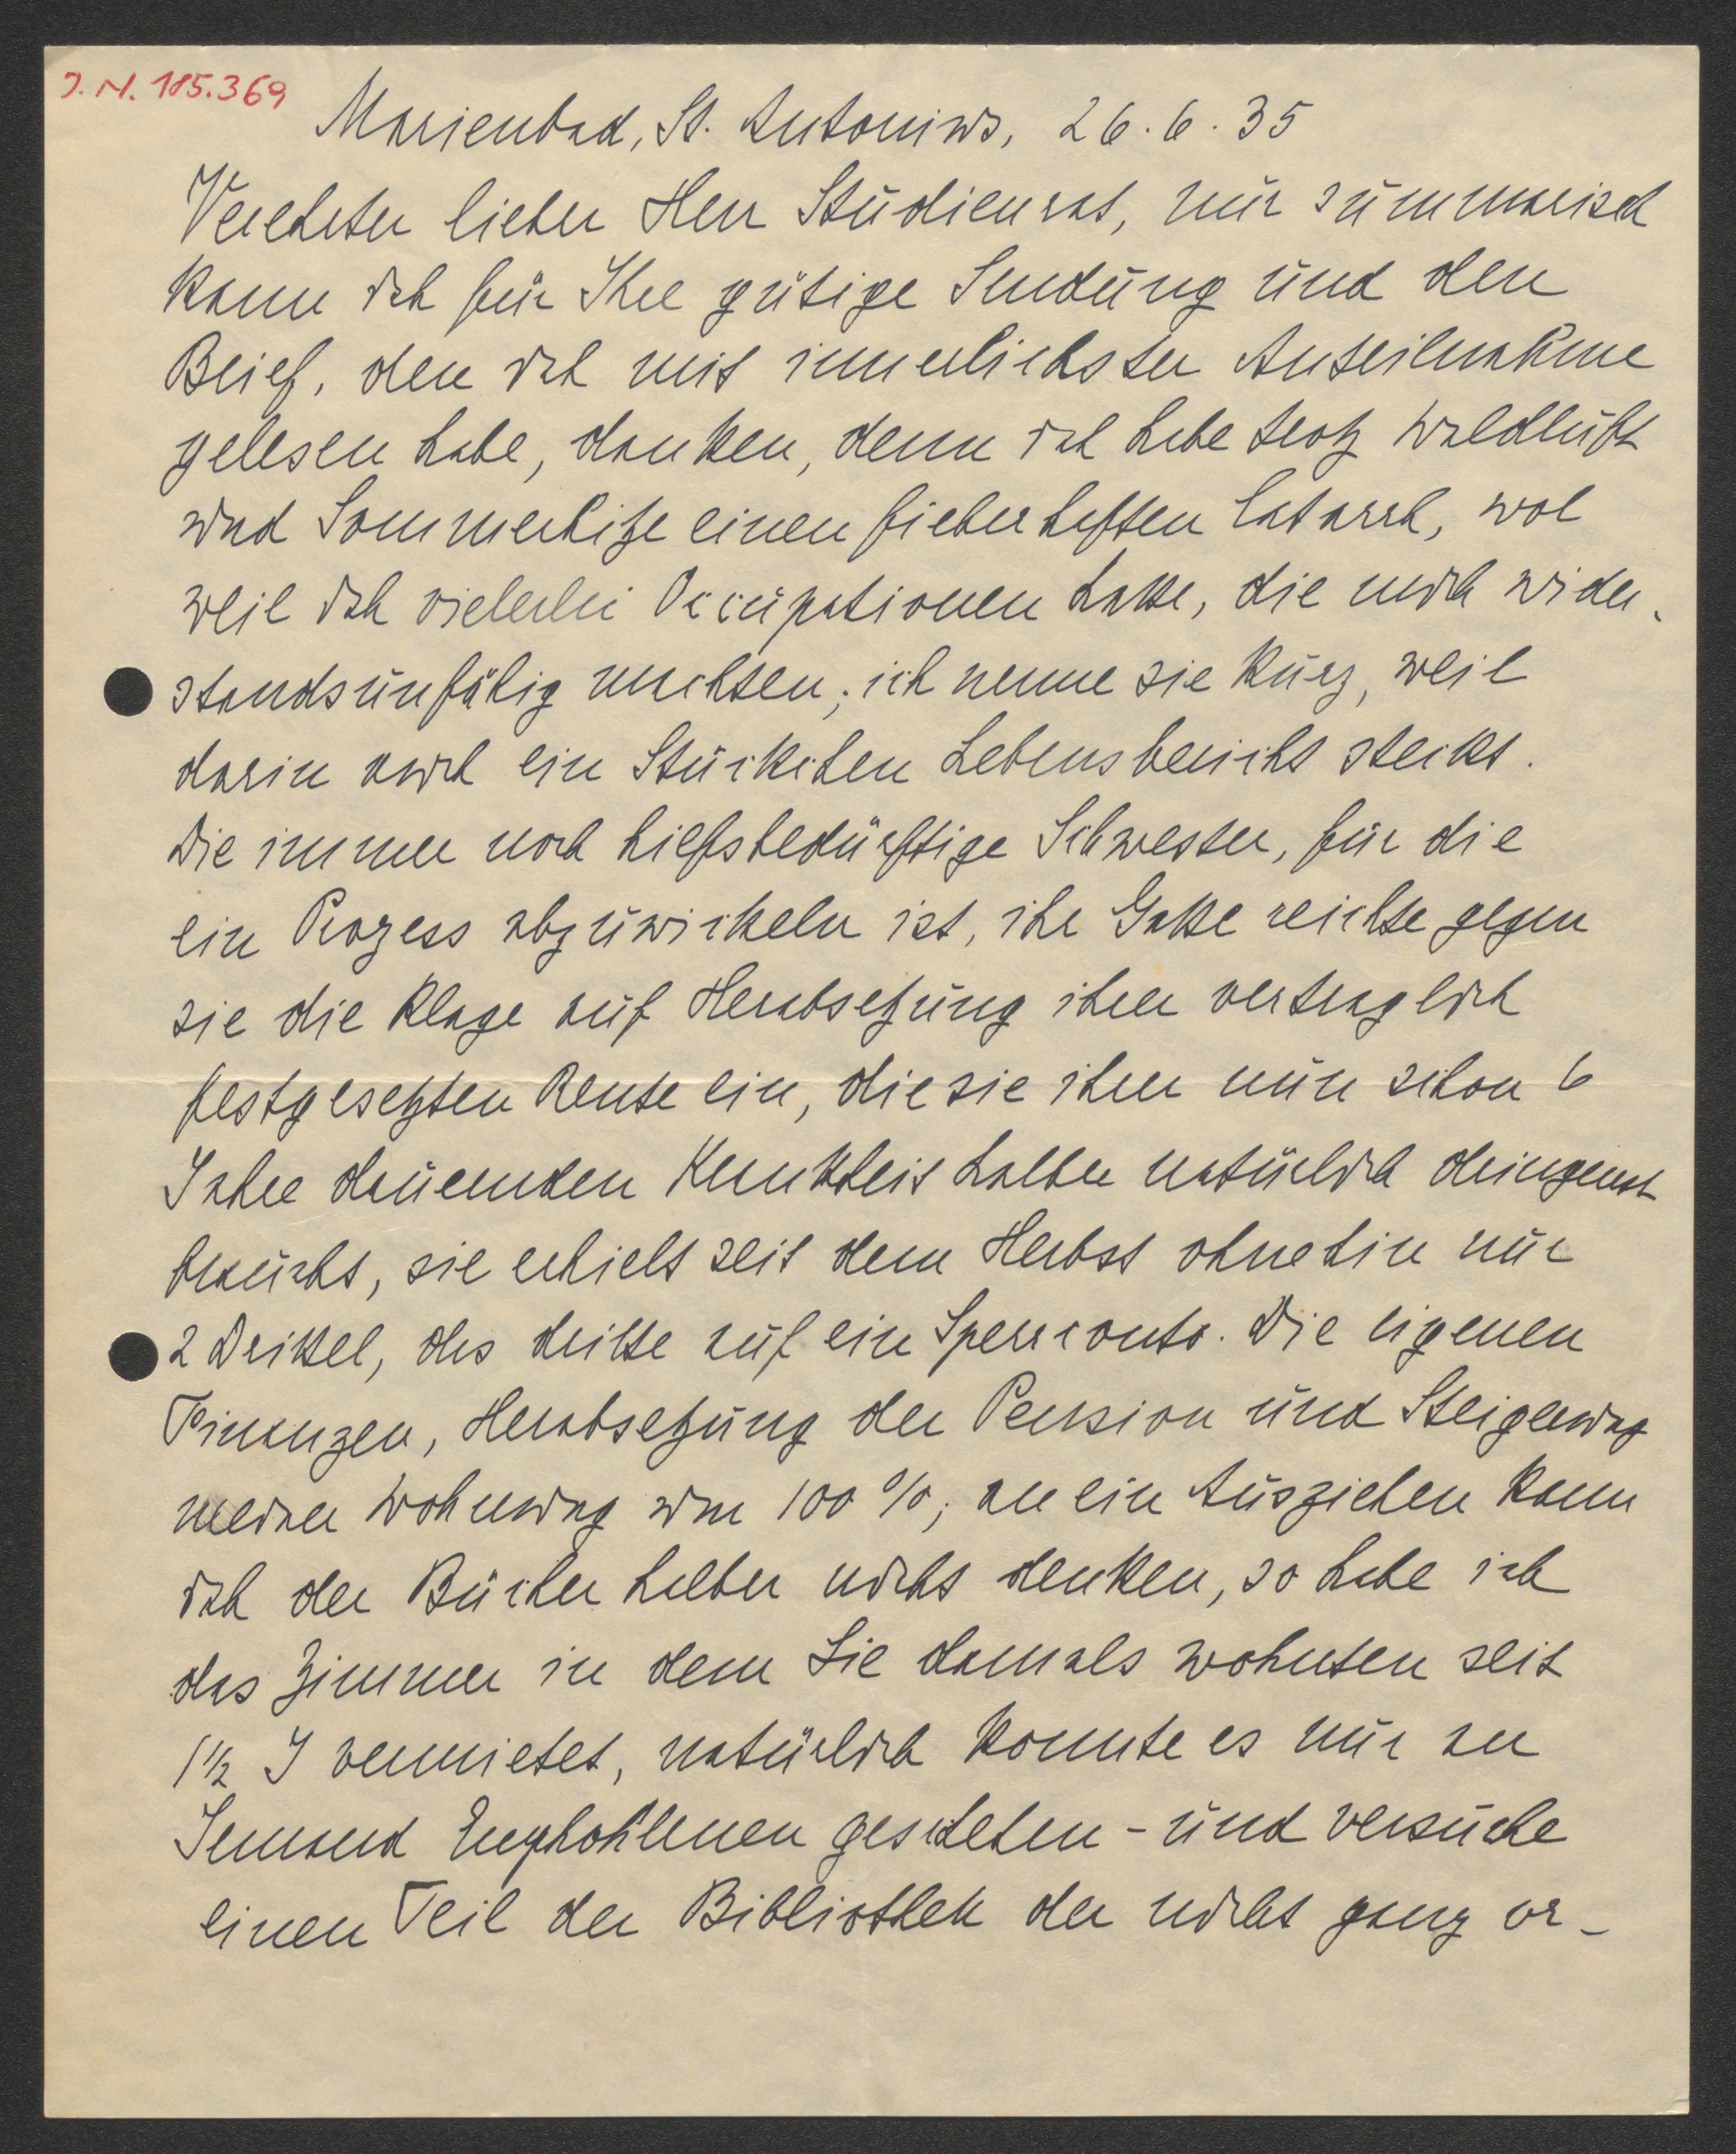 J. N. 185.369
Marienbad, St. Antonius, 26. 6. 35
Verehrter lieber Herr Studienrat, nur summarisch
kann ich für Ihre gütige Sendung und den
Brief, den ich mit innerlichster Anteilnahme
gelesen habe, danken, denn ich habe trotz Waldluft
und Sommerhitze einen fieberhaften Catarrh, wol
weil ich vielerlei Occupationen hatte, die mich wider-
standsunfähig machten; ich nenne sie kurz, weil
darin auch ein Stückchen Lebensbericht steckt.
Die immer noch hilfsbedürftige Schwester, für die
ein Prozess abzuwickeln ist, ihr Gatte reichte gegen
sie die Klage auf Herabsetzung ihrer vertraglich
festgesetzten Rente ein, die sie ihrer nun schon 6
Jahre dauernden Krankheit halber natürlich dringenst
braucht, sie erhielt seit dem Herbst ohnehin nur
2 Drittel, das dritte auf ein Sperrconto. Die eigenen
Finanzen, Herabsetzung der Pension und Steigerung
meiner Wohnung um 100 %; an ein Ausziehen kann
ich der Bücher halber nicht denken, so habe ich
das Zimmer in dem Sie damals wohnten seit
1½ J vermietet, natürlich konnte es nur an
Jemand Empfohlenen geschehen - und versuche
einen Teil der Bibliothek der nicht ganz or-